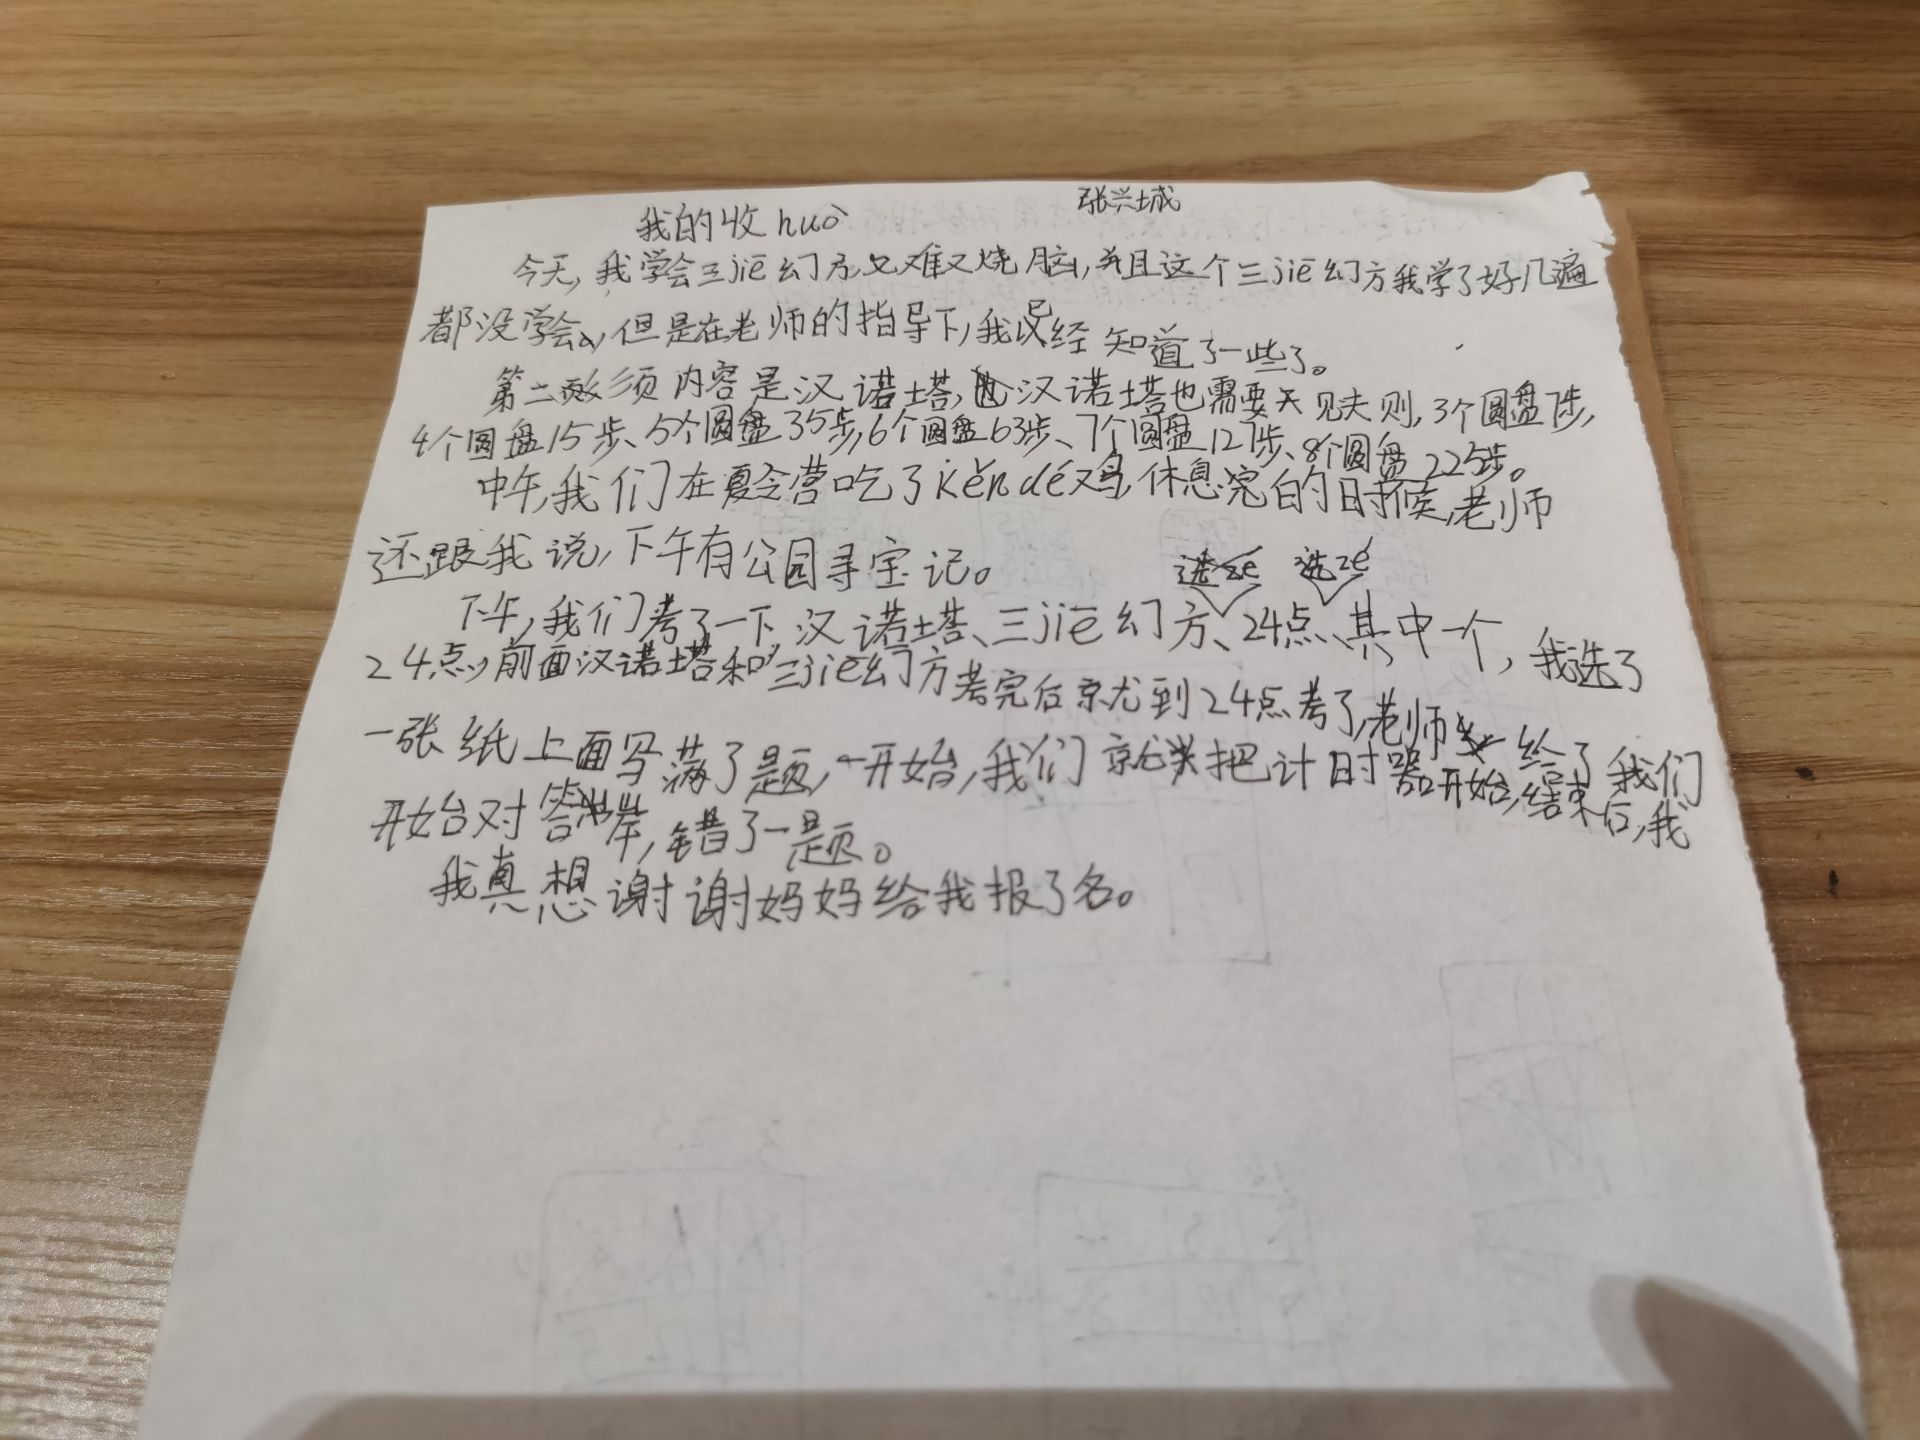 我的收huò
张兴城
今天,我学会三jiē幻方又难又烧脑,并且这个三jiē幻方我学了好几遍
都没学会,但是在老师的指导下,我已经知道了一些了。
第二项内容是汉诺塔,汉诺塔也需要规则,3个圆盘7步,
4个圆盘15步、5个圆盘35步,6个圆盘63步、7个圆盘127步、8个圆盘225步。
中午,我们在夏令营吃了kěndé鸡,休息完的时候,老师
还跟我说,下午有公园寻宝记。
选zé
下午,我们考了一下汉诺塔、三jiē幻方、24点、其中一个,我选了
24点,前面汉诺塔和三jiē幻方考完后就到24点考了,老师给了我们
一张纸上面写满了题,一开始,我们就把计时器开始,结束后,我
开始对答案,错了一题。
我真想谢谢妈妈给我报了名。